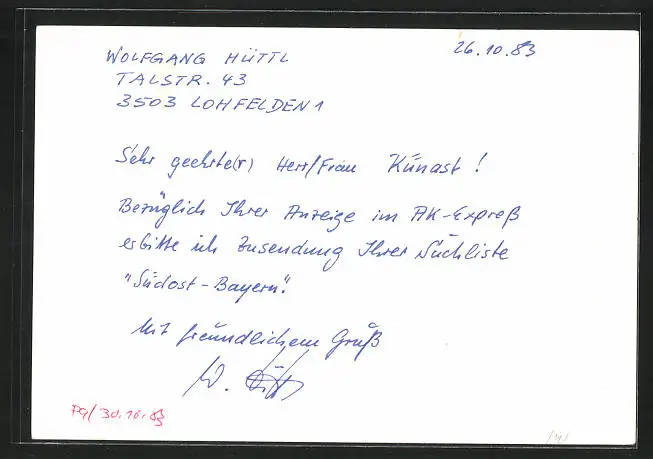 26.10.83
WOLFGANG HÜTTL
TALSTR. 43
3503 LOHFELDEN 1
Sehr geehrte(r) Herr/Frau Künast!
Bezüglich Ihrer Anzeige im AK-Expreß
erbitte ich Zusendung Ihrer Suchliste
"Südost-Bayern".
Mit freundlichem Gruß
W. Hüttl
30.10.83